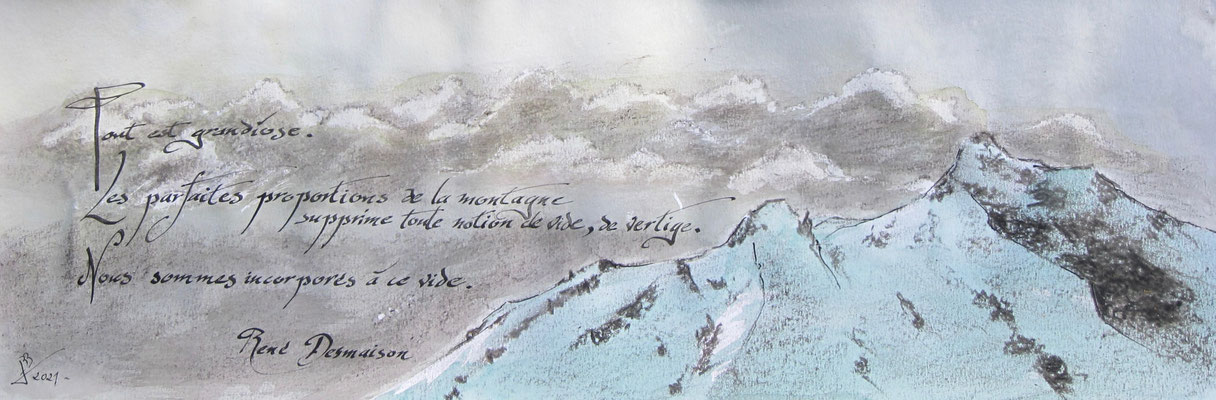 Tout est grandiose.
Les parfaites proportions de la montagne
supprime toute notion de vide, de vertige.
Nous sommes incorporés à ce vide.
René Desmaison
2021